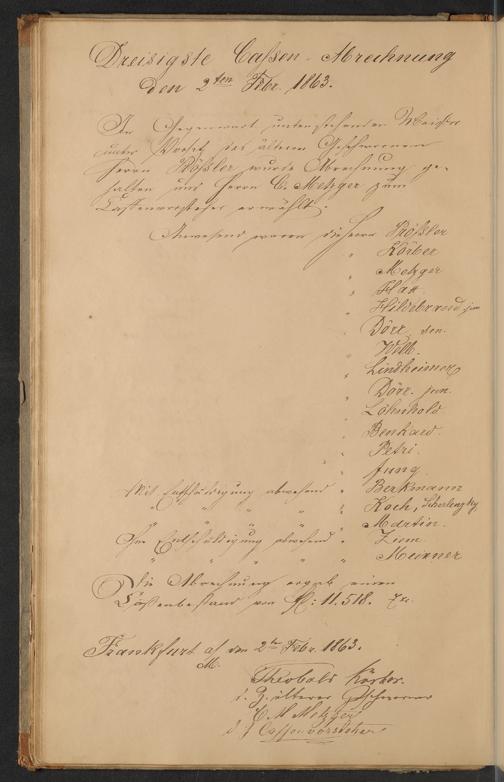 Dreisigste Caßen-Abrechnung
den 2ten Febr. 1863.
In Gegenwart untenstehender Meister
unter Vorsitz des älteren Geschwornen
Herrn Rößler wurde Abrechnung ge-
halten und Herrn C. Metzger zum
Cassenvorsteher erwählt.
Anwesend waren die Herrn Rößler
" Körber
" Metzger
" Flach
" Hildebrand jun
" Dörr, sen.
" Welb.
" Lindheimer
" Dörr. jun.
" Löhnhold
" Benkard.
" Petri.
" Jung
Mit Entschuldigung abwesend " Berkmann
" " " " Koch,
" " " " Martin.
Ohne Entschuldigung abwesend " Zinn
" " " " Meixner
Die Abrechnung ergab einen
Cassenbestand von fl: 11.518. 7 xr.
Frankfurt a/ den 2te Febr. 1863.
M.
Theobald Körber.
d. Z. älterer Geschworner
C. M. Metzger
d. Z. Cassenvorsteher